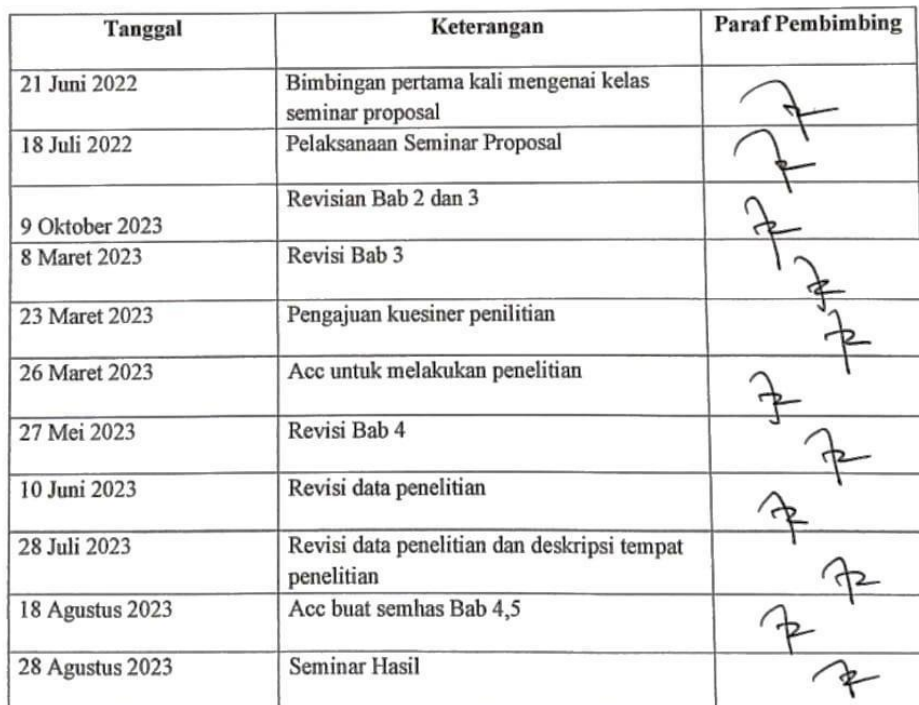 Tanggal Keterangan Paraf Pembimbing
21 Juni 2022 Bimbingan pertama kali mengenai kelas
seminar proposal
18 Juli 2022 Pelaksanaan Seminar Proposal
Revisian Bab 2 dan 3
9 Oktober 2023
8 Maret 2023 Revisi Bab 3
23 Maret 2023 Pengajuan kuesiner penilitian
26 Maret 2023 Acc untuk melakukan penelitian
27 Mei 2023 Revisi Bab 4
10 Juni 2023 Revisi data penelitian
28 Juli 2023 Revisi data penelitian dan deskripsi tempat
penelitian
18 Agustus 2023 Acc buat semhas Bab 4,5
28 Agustus 2023 Seminar Hasil